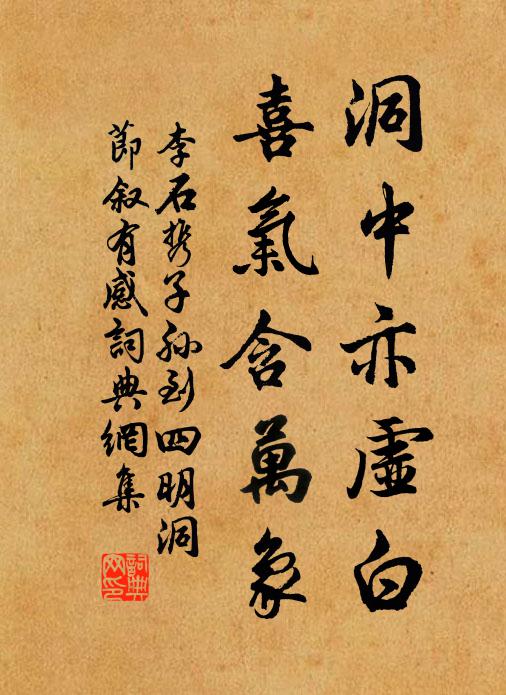 洞中亦虛白
喜氣含萬象
李石携子孫到四明洞
節叙有感詞典網集
詞典网印